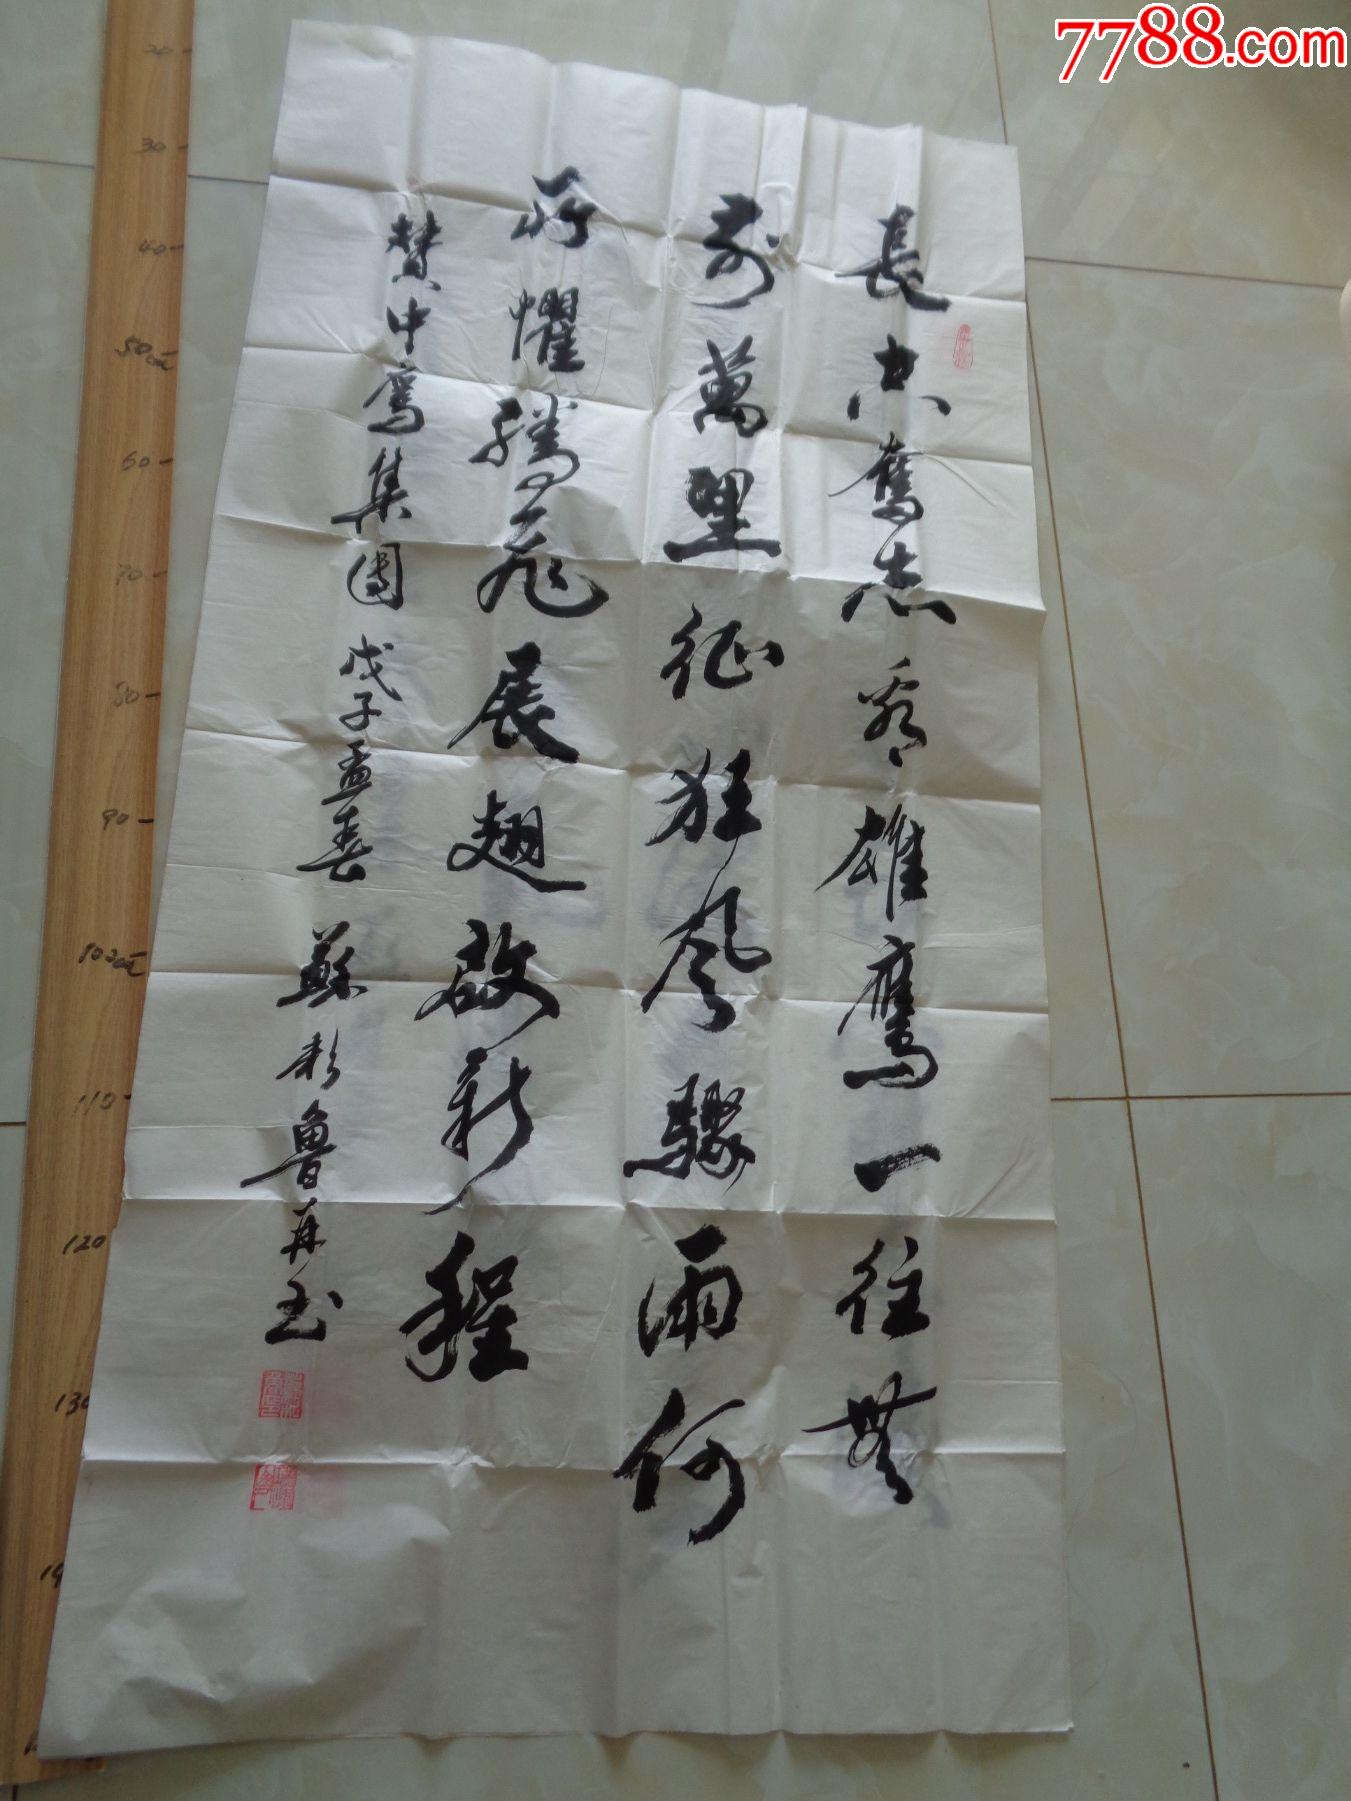 7788.com
長空奮志看雄鷹一往無
前萬里征狂風驟雨何
所懼騰飛展翅啟新程
贊中鷹集團 戊子孟春 蘇 魯 玉
30
40
50
60
70
80
90
100
110
120
130